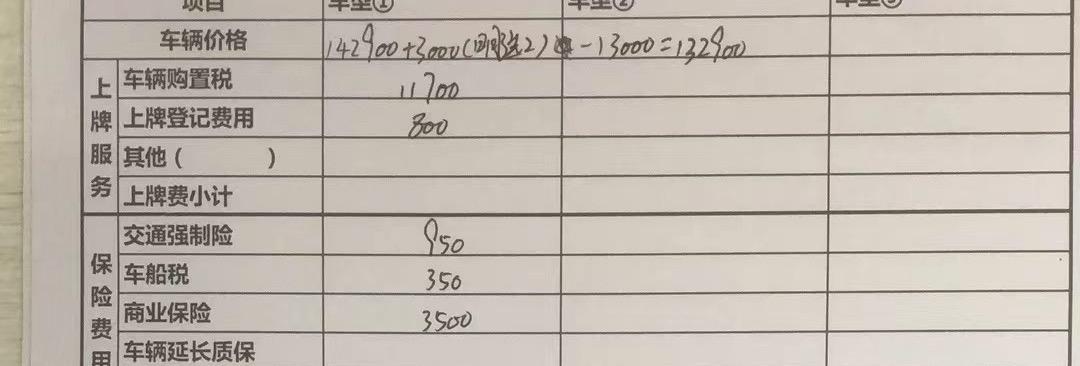 项目 车型① 车型② 车型③
车辆价格 142900+3000( 2) -13000=132900
上牌服务
车辆购置税 11700
上牌登记费用 800
其他( )
上牌费小计
保险费用
交通强制险 950
车船税 350
商业保险 3500
车辆延长质保